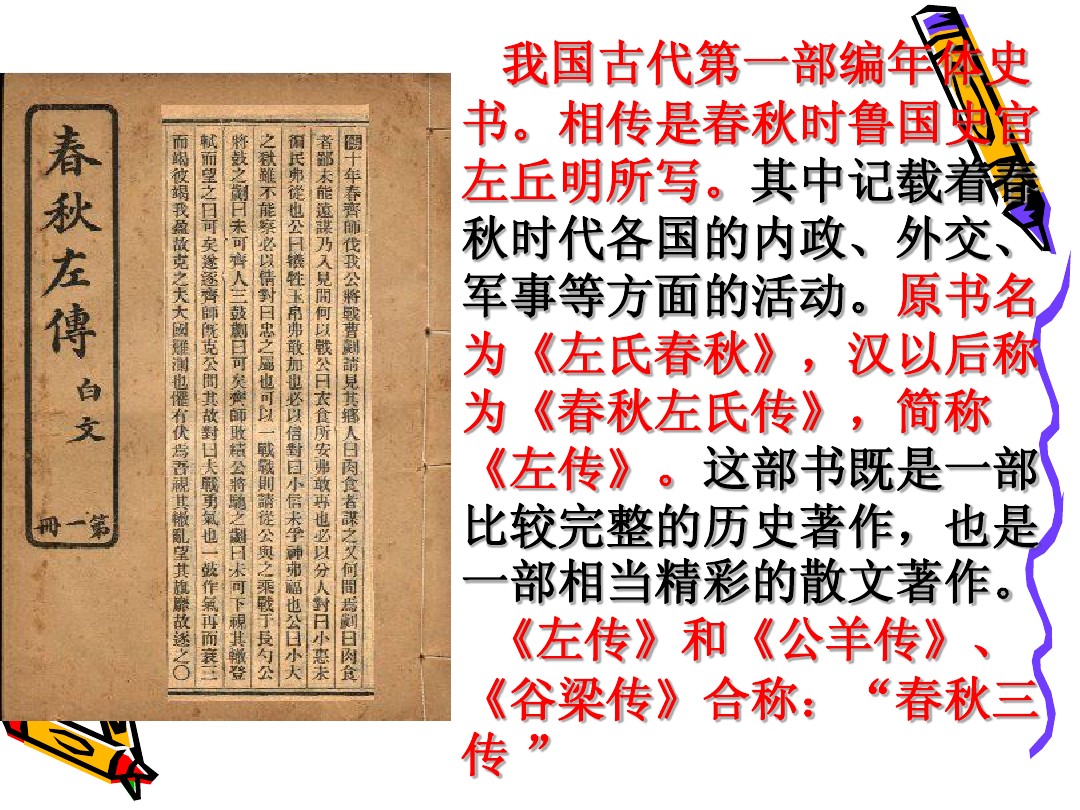 春秋左傳
白文
第一冊
十年春齊師伐我公將戰曹劌請見其鄉人曰肉食者謀之又何間焉劌曰肉食
者鄙未能遠謀乃入見問何以戰公曰衣食所安弗敢專也必以分人對曰小惠未
徧民弗從也公曰犧牲玉帛弗敢加也必以信對曰小信未孚神弗福也公曰小大
之獄雖不能察必以情對曰忠之屬也可以一戰戰則請從公與之乘戰于長勺公
將鼓之劌曰未可齊人三鼓劌曰可矣齊師敗績公將馳之劌曰未可下視其轍登
軾而望之曰可矣遂逐齊師既克公問其故對曰夫戰勇氣也一鼓作氣再而衰三
而竭彼竭我盈故克之夫大國難測也懼有伏焉吾視其轍亂望其旗靡故逐之〇
我国古代第一部编年体史
书。相传是春秋时鲁国史官
左丘明所写。其中记载着春
秋时代各国的内政、外交、
军事等方面的活动。原书名
为《左氏春秋》，汉以后称
为《春秋左氏传》，简称
《左传》。这部书既是一部
比较完整的历史著作，也是
一部相当精彩的散文著作。
《左传》和《公羊传》、
《谷梁传》合称：“春秋三
传 ”